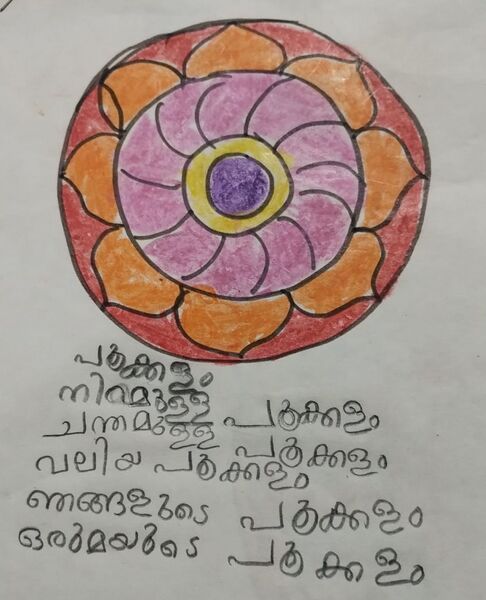 പൂക്കളം
നിറമുള്ള പൂക്കളം
ചന്തമുള്ള പൂക്കളം
വലിയ പൂക്കളം
ഞങ്ങളുടെ പൂക്കളം
ഒരുമയുടെ പൂക്കളം